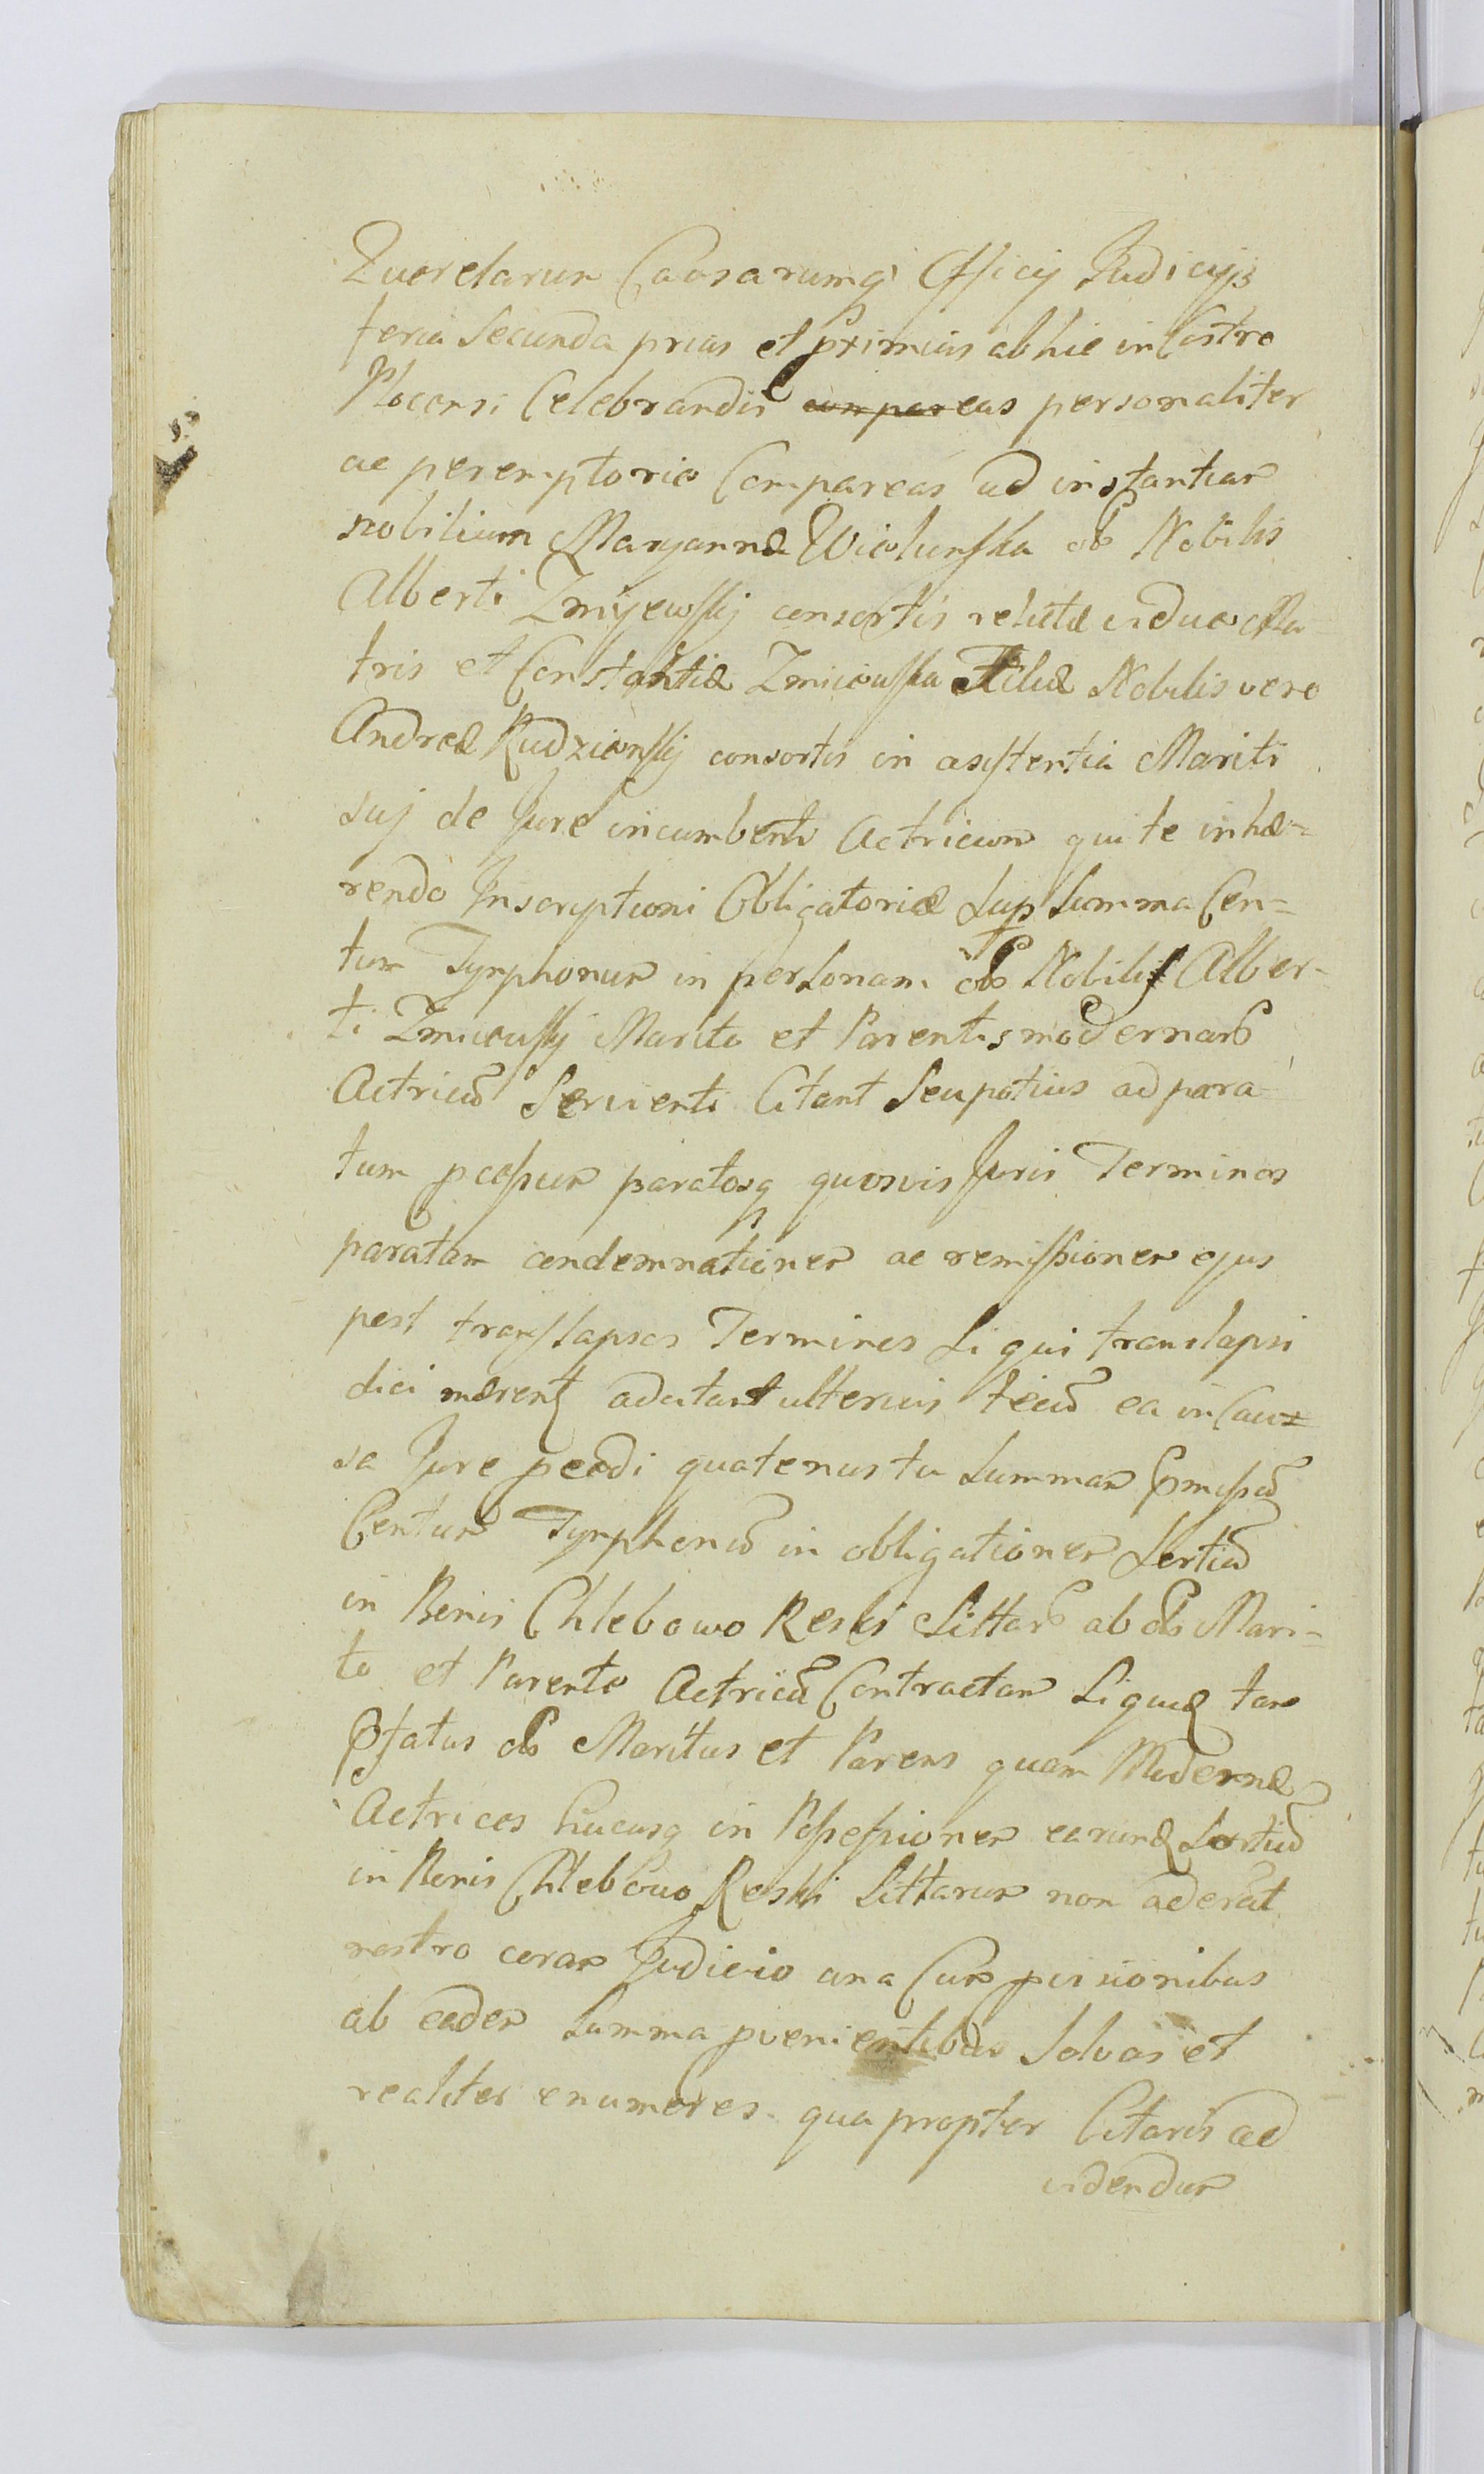 Querelarum Causarumq Officij Judicijs
feria Secunda prius et pximius ab hic in Castro
Plocensi Celebrandis compareas personaliter
ac peremptorie Compareas ad instantiam
nobilium Maryannæ Wiolunska olb Nobilis
Alberti Zmijewsky consortis relictæ viduæ Ma
tris et Constantiæ Zmiewska Filiæ Nobilis vero
Andreæ Rudzienskij consortis in assistentia Mariti
suj de Jure incumbenti Actricum qui te inhæ=
rendo Inscriptioni Obligatoriæ Sup Summa Cen=
tum Tynphonum in personam olb Nobilis Alber=
ti Zmiewskij Mariti et Parentis modernarb
Actricū Servienti Citant Seu potius ad para
tum pcessum paratosq quosvis Juris Terminos
paratam condemnationem ac remissionem ejus
post translapsos Terminos Si qui translapsi
dici merent adcitant ulterius tecū ea in Cau=
sa Jure pcedi quatenus tu Summam pmissā
Centum Tynphonū in obligationem Sortiū
in Bonis Chlebowo Reski Sittarb ab olb Mari=
to et Parente Actricū Contractam Si quidem tam
pfatus olb Maritus et Parens quam Modernæ
Actrices hucusq in Possessionem earund Sortiū
in Bonis Chlebowo Reski Sittarum non aderat
nostro coram Judicio una Cum pvisionibus
ab eadem Summa pvenientibus Solvas et
realiter enumeres qua propter Citaris ad
videndum